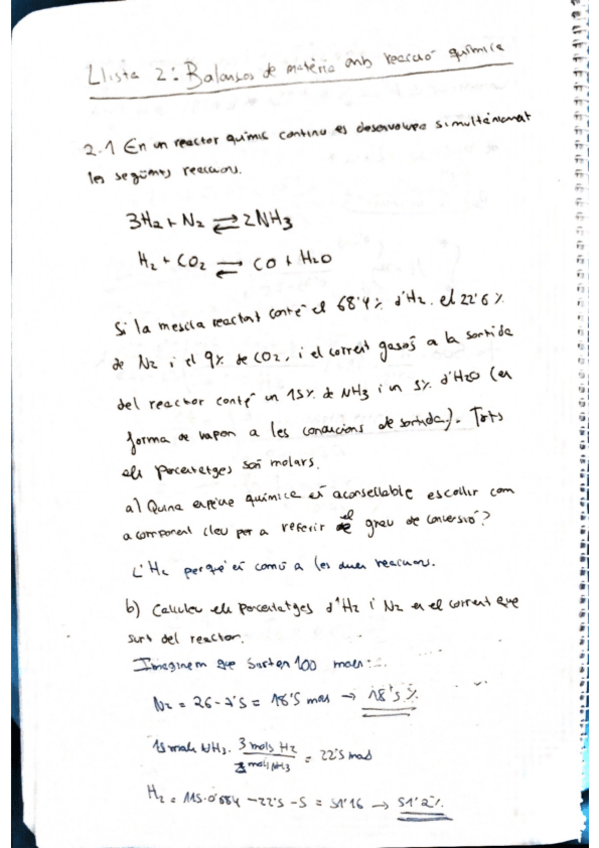 Llista 2: Balanços de matèria amb reacció química
2.1 En un reactor químic continu es desenvolupa simultàniament
les següents reaccions.
3H₂ + N₂ ⇄ 2NH₃
H₂ + CO₂ ⇄ CO + H₂O
Si la mescla reactant conté el 68'4% d'H₂, el 22'6%
de N₂ i el 9% de CO₂, i el corrent gasós a la sortida
del reactor conté un 15% de NH₃ i un 5% d'H₂O (en
forma de vapor a les condicions de sortida). Tots
els percentatges són molars.
a) Quina espècie química és aconsellable escollir com
a component clau per a referir el grau de conversió?
L'H₂ perquè és comú a les dues reaccions.
b) Calculeu els percentatges d'H₂ i N₂ en el corrent que
surt del reactor.
Imaginem que surten 100 mols:
N₂ = 26 - 7'5 = 18'5 mols → 18'5%
15 mols NH₃ · 3 mols H₂ / 2 mols NH₃ = 22'5 mols
H₂ = 115·0'684 - 22'5 - 5 = 51'16 → 51'2%